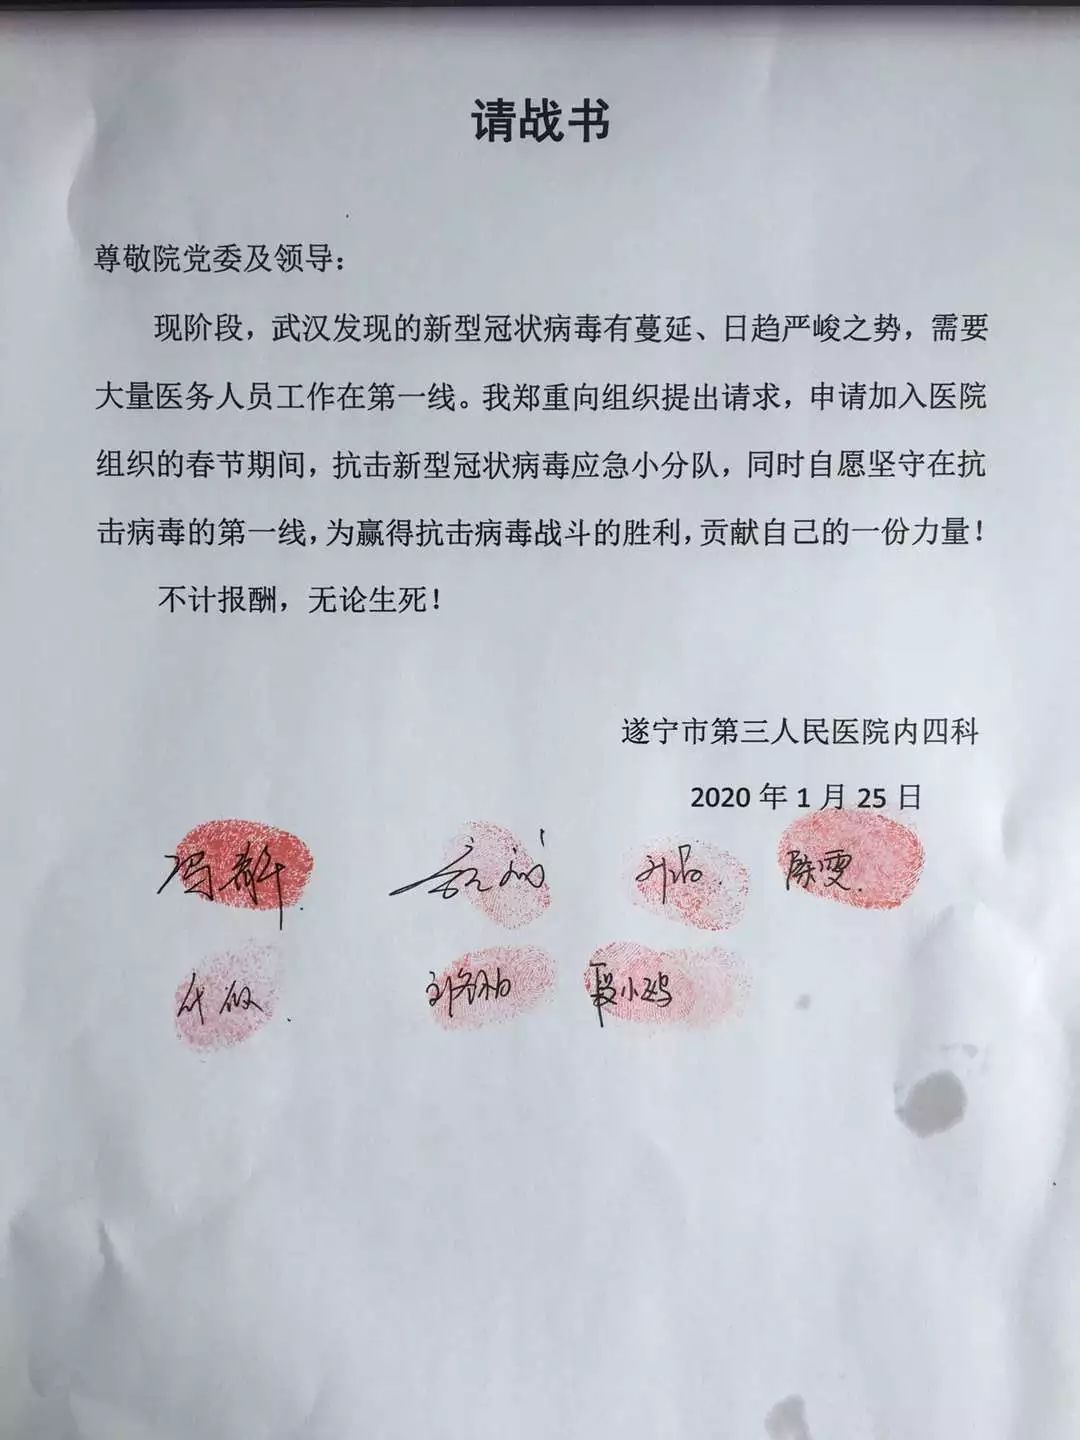 请战书
尊敬院党委及领导：
现阶段，武汉发现的新型冠状病毒有蔓延、日趋严峻之势，需要
大量医务人员工作在第一线。我郑重向组织提出请求，申请加入医院
组织的春节期间，抗击新型冠状病毒应急小分队，同时自愿坚守在抗
击病毒的第一线，为赢得抗击病毒战斗的胜利，贡献自己的一份力量！
不计报酬，无论生死！
遂宁市第三人民医院内四科
2020 年 1 月 25 日
段小鸥